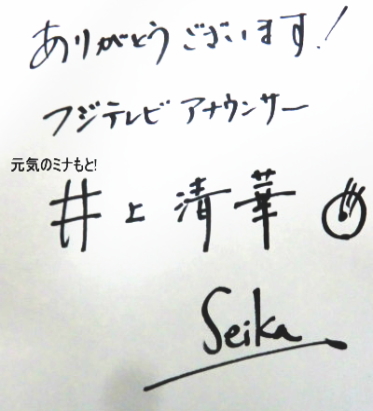 ありがとうございます!
フジテレビ アナウンサー
元気のミナもと!
井上清華
Seika